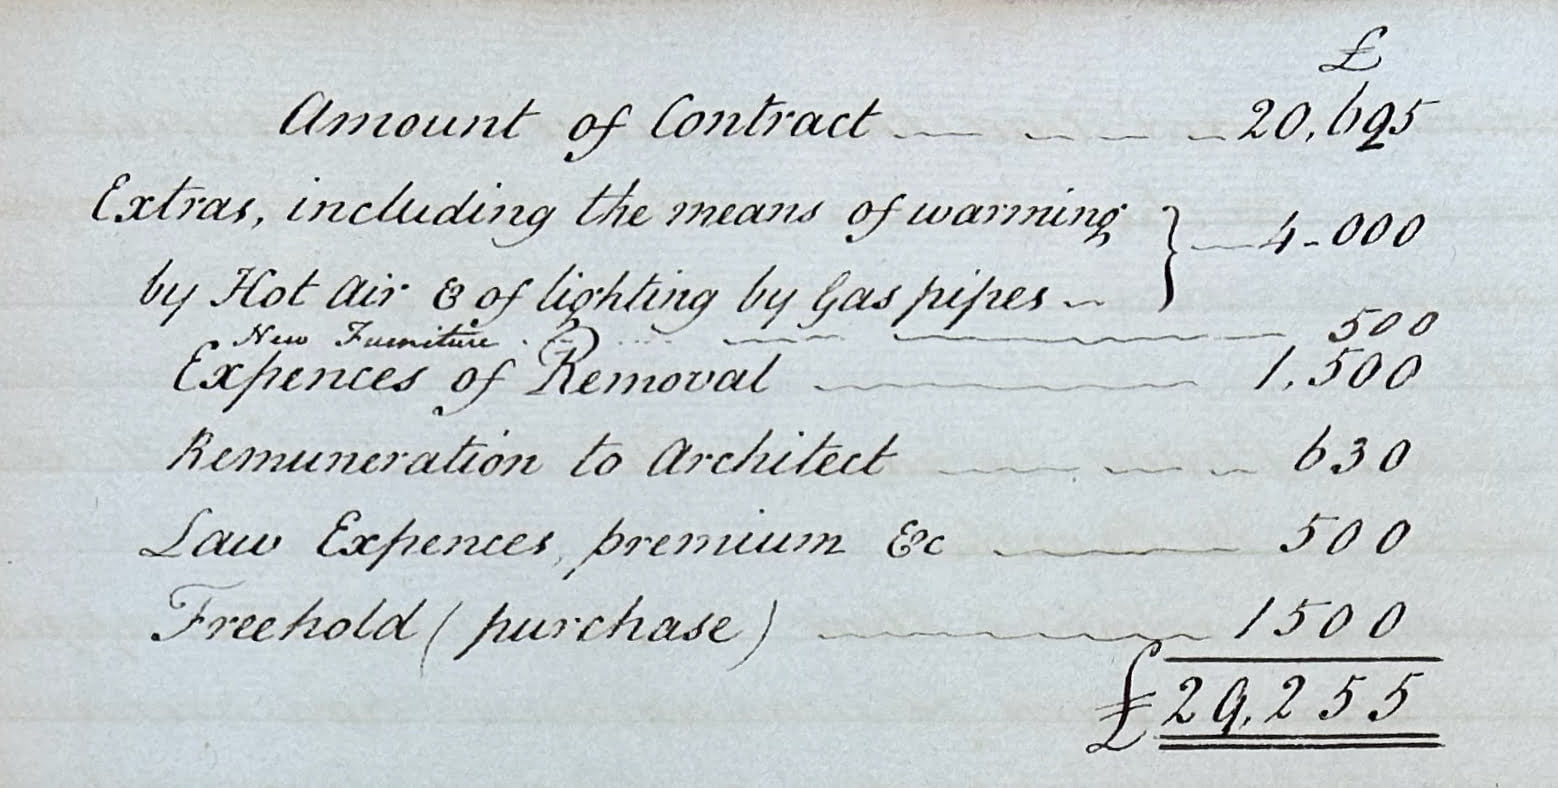 £
Amount of Contract 20,695
Extras, including the means of warming } 4-000
by Hot Air & of lighting by Gas pipes
New Furniture 500
Expences of Removal 1,500
Remuneration to Architect 630
Law Expences, premium &c 500
Freehold (purchase) 1500
£29,255